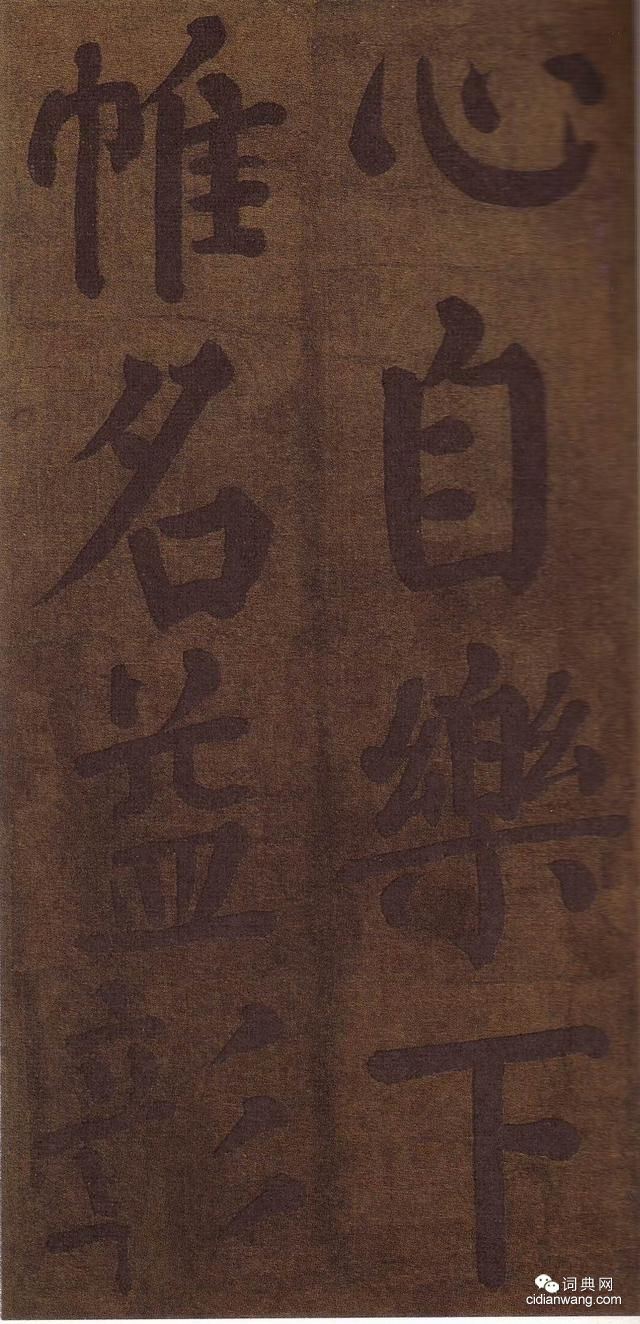 心自樂下
帷名益彰
词典网
cidianwang.com